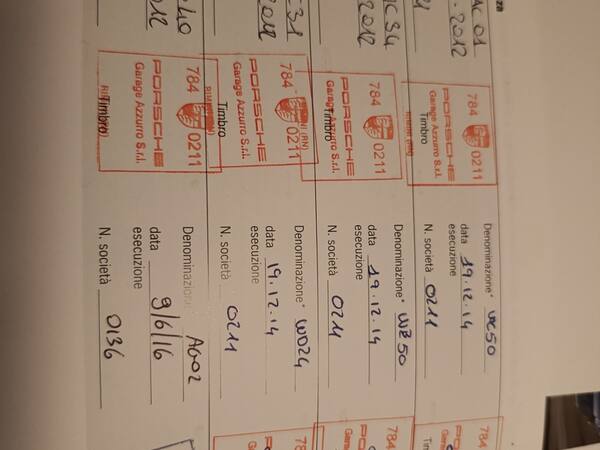 za
AC01
.2012
784 0211
PORSCHE
Garage Azzurro S.r.l.
Timbro
Denominazione* WC50
data 19.12.14
esecuzione
N. società 0211
784
C34
2012
784 0211
PORSCHE
Garage Azzurro S.r.l.
Denominazione* WB50
data 19.12.14
esecuzione
N. società 0211
784
C31
2012
784 0211
PORSCHE
Garage Azzurro S.r.l.
Timbro
Denominazione* WD24
data 19.12.14
esecuzione
N. società 0211
40
2012
784 0211
PORSCHE
Garage Azzurro S.r.l.
Timbro
Denominazione* AG02
data 9/6/16
esecuzione
N. società 0136